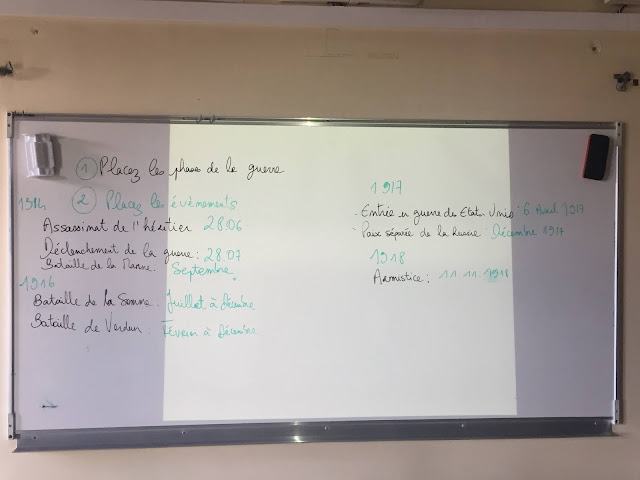 1 Placez les phases de la guerre
2 Placez les évènements
1914
Assassinat de l'héritier 28.06
Déclenchement de la guerre : 28.07
Bataille de la Marne : Septembre
1916
Bataille de la Somme : Juillet à décembre
Bataille de Verdun : Février à décembre
1917
- Entrée en guerre des Etats Unis : 6 Avril 1917
- Paix séparée de la Russie : Décembre 1917
1918
Armistice : 11.11.1918